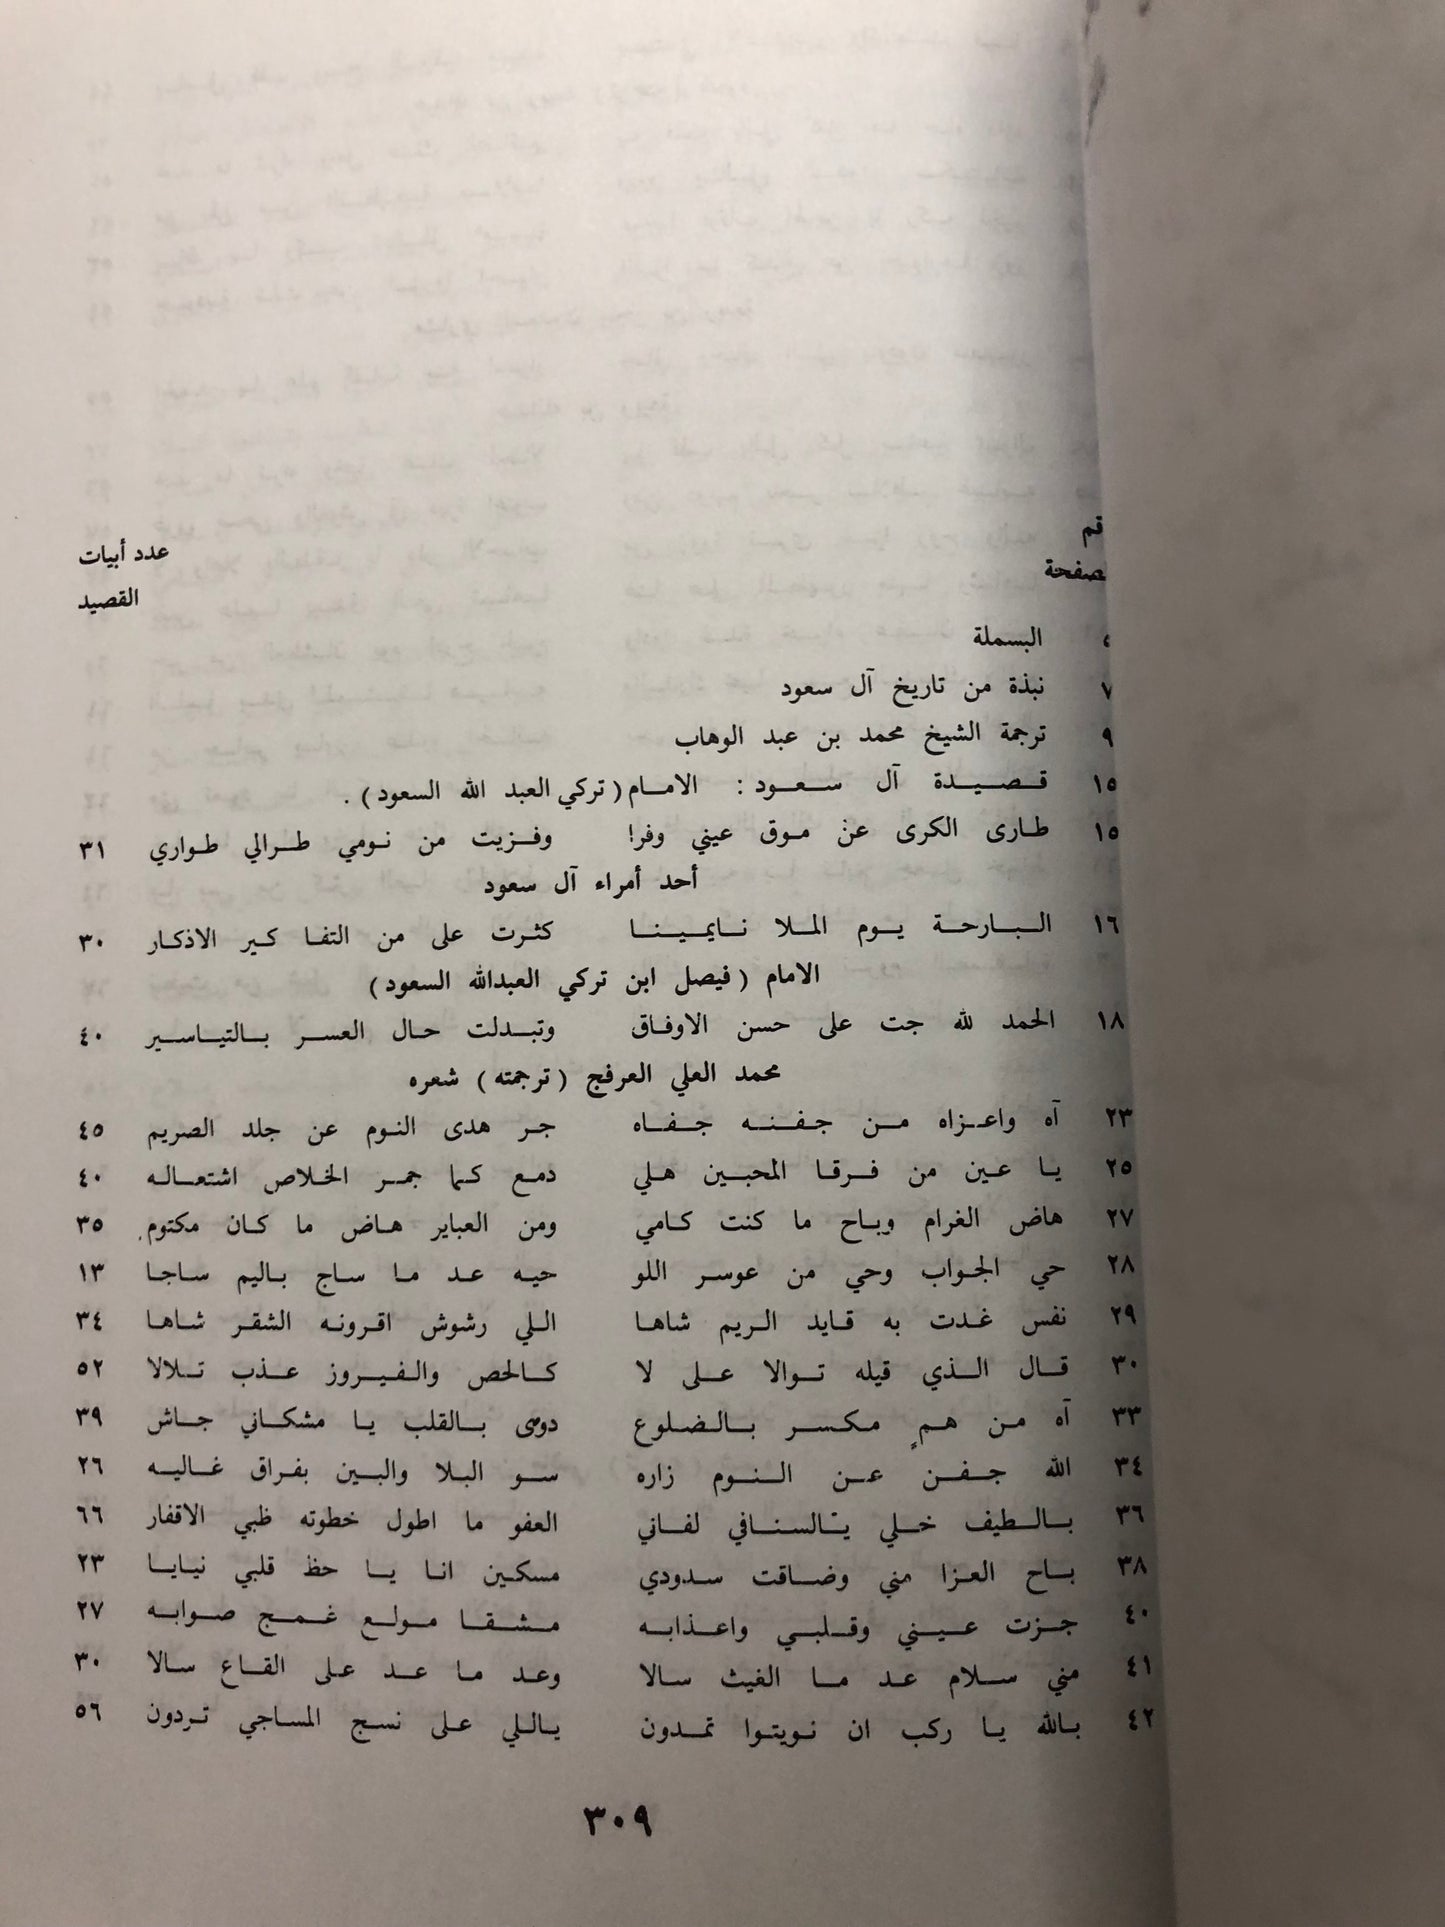 قم
صفحة
عدد أبيات
القصيد
البسملة
٧ نبذة من تاريخ آل سعود
٩ ترجمة الشيخ محمد بن عبد الوهاب
١٥ قصيدة آل سعود : الامام ( تركي العبد الله السعود ) .
١٥ طارى الكرى عن موق عيني وفرا وفزيت من نومي طرالي طواري ٣١
أحد أمراء آل سعود
١٦ البارحة يوم الملا نايمينا كثرت على من التفا كير الاذكار ٣٠
الامام ( فيصل ابن تركي العبدالله السعود )
١٨ الحمد لله جت على حسن الاوفاق وتبدلت حال العسر بالتياسير ٤٠
محمد العلي العرفج ( ترجمته ) شعره
٢٣ آه واعزاه من جفنه جفاه جر هدى النوم عن جلد الصريم ٤٥
٢٥ يا عين من فرقا المحبين هلي دمع كما جمر الخلاص اشتعاله ٤٠
٢٧ هاض الغرام وباح ما كنت كامي ومن العباير هاض ما كان مكتوم ٣٥
٢٨ حي الجواب وحي من عوسر اللو حيه عد ما ساج باليم ساجا ١٣
٢٩ نفس غدت به قايد الريم شاها اللي رشوش اقرونه الشقر شاها ٣٤
٣٠ قال الذي قيله توالا على لا كالحص والفيروز عذب تلالا ٥٢
٣٣ آه من همٍ مكسر بالضلوع دوى بالقلب يا مشكاني جاش ٣٩
٣٤ الله جفن عن النوم زاره سو البلا والبين بفراق غاليه ٢٦
٣٦ بالطيف خلي يتالسنافي لفاني العفو ما اطول خطوته ظبي الاقفار ٦٦
٣٨ باح العزا مني وضاقت سدودي مسكين انا يا حظ قلبي نيايا ٢٣
٤٠ جزت عيني وقلبي واعذابه مشقا مولع غمج صوابه ٢٧
٤١ مني سلام عد ما الغيث سالا وعد ما عد على القاع سالا ٣٠
٤٢ بالله يا ركب ان نويتوا تمدون ياللي على نسج المساجي تردون ٥٦
٣٠٩